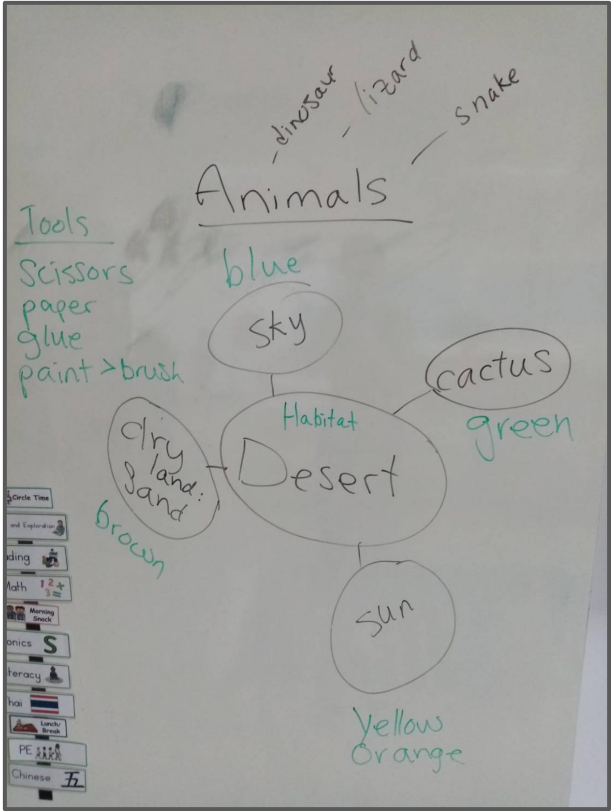 - dinosaur
- lizard
- snake
Animals
Tools
scissors
paper
glue
paint > brush
blue
sky
cactus
green
Habitat
Desert
dry
land:
sand
brown
sun
yellow
orange
Circle Time
and Exploration
ding
Math 1 2 +
3 =
Morning
Snack
onics S
teracy
hai
Lunch/
Break
PE
Chinese 五